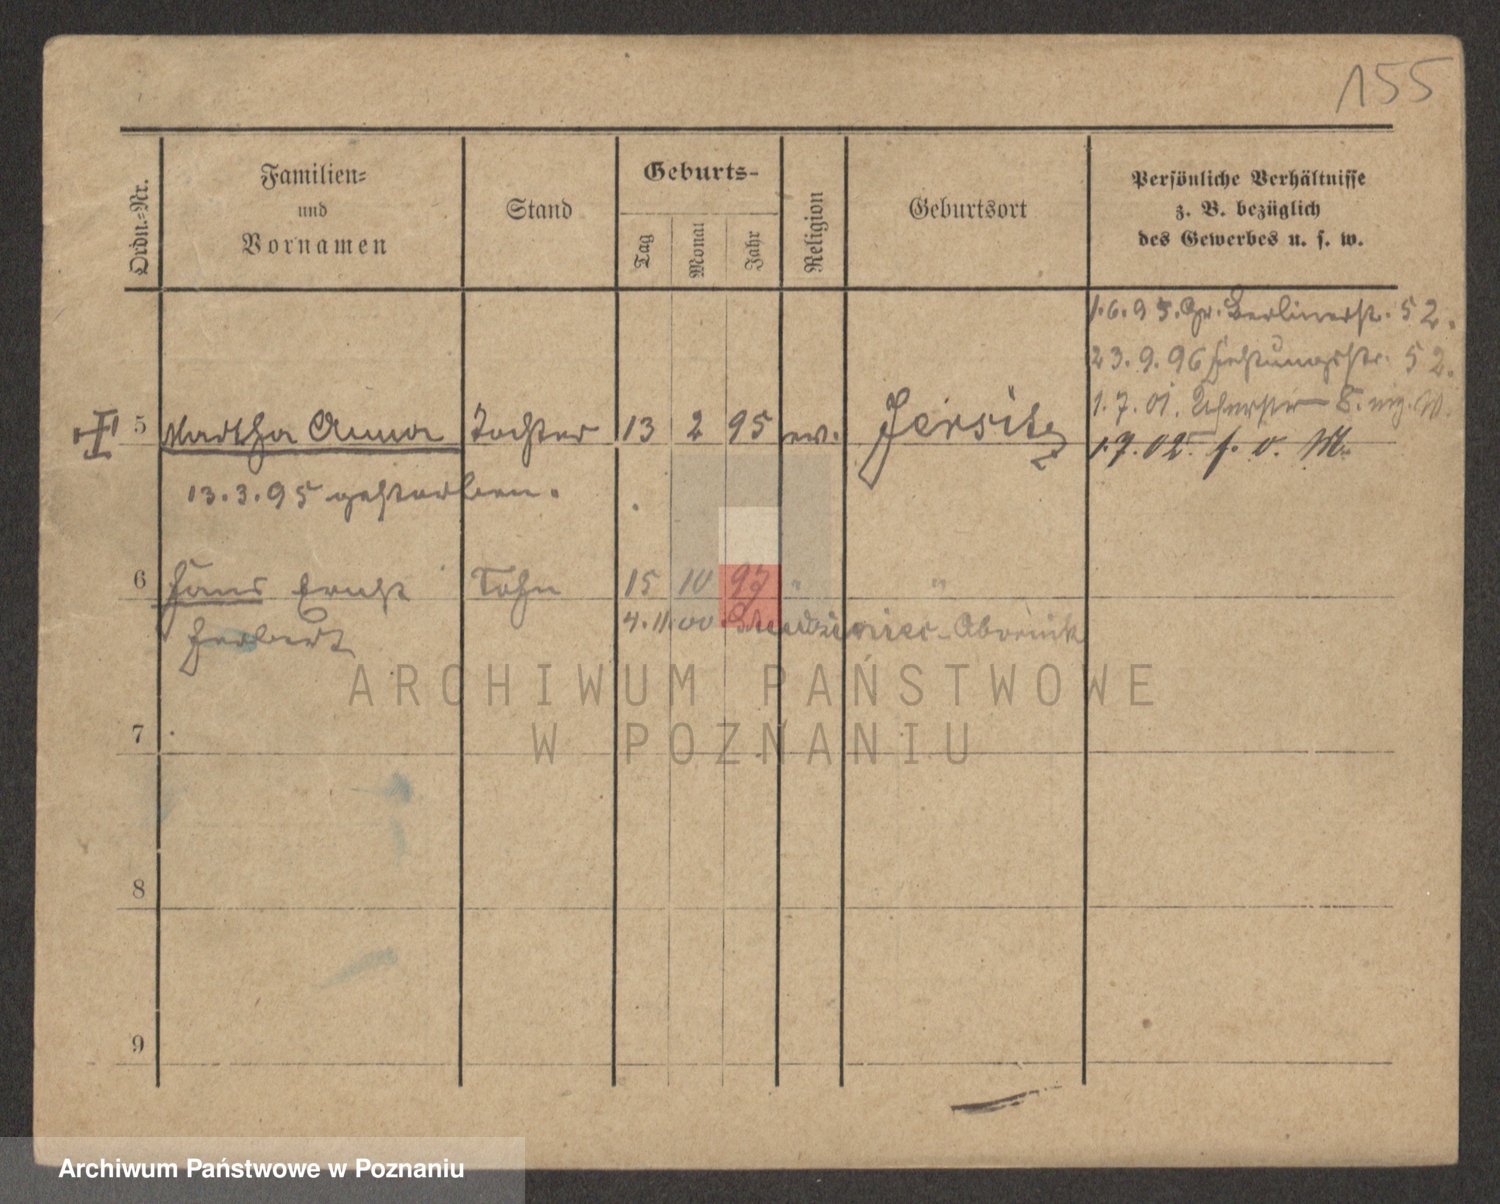 155
Ordn.-Nr.
Familien-
und
Vornamen
Stand
Geburts-
Tag
Monat
Jahr
Religion
Geburtsort
Persönliche Verhältnisse
z. B. bezüglich
des Gewerbes u. s. w.
1.6.95. Gr. Berlinerstr. 52.
23.9.96 52.
1.7.01. 8.
5 Martha Anna Tochter 13 2 95 ev. Jersitz 1.7.02. f. v. M.
13.3.95 gestorben.
6 Hans Ernst Sohn 15 10 97 " "
Herbert 4.11.00 Obornik
7
8
9
ARCHIWUM PAŃSTWOWE
W POZNANIU
Archiwum Państwowe w Poznaniu